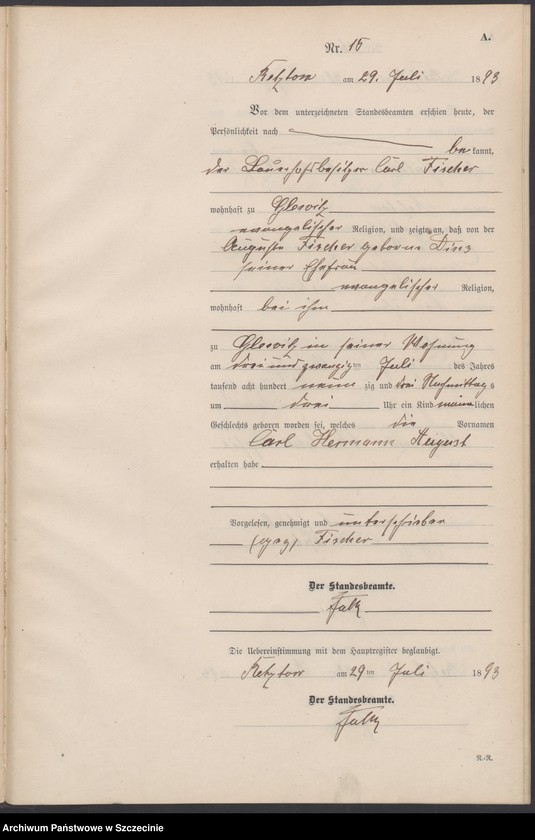 A.
Nr. 15
Retztow am 29. Juli 1893
Vor dem unterzeichneten Standesbeamten erschien heute, der
Persönlichkeit nach
bekannt,
der Bauerhofsbesitzer Carl Fischer
wohnhaft zu Glewitz
evangelischer Religion, und zeigte an, daß von der
Auguste Fischer geborne
seiner Ehefrau
evangelischer Religion,
wohnhaft bei ihm
zu Glewitz in seiner Wohnung
am drei und zwanzigten Juli des Jahres
tausend acht hundert neunzig und drei Nachmittags
um drei Uhr ein Kind männlichen
Geschlechts geboren worden sei, welches die Vornamen
Carl Hermann August
erhalten habe
Vorgelesen, genehmigt und unterschrieben
(gez) Fischer
Der Standesbeamte.
Falk
Die Uebereinstimmung mit dem Hauptregister beglaubigt.
Retztow am 29ten Juli 1893
Der Standesbeamte.
Falk
R.-R.
Archiwum Państwowe w Szczecinie